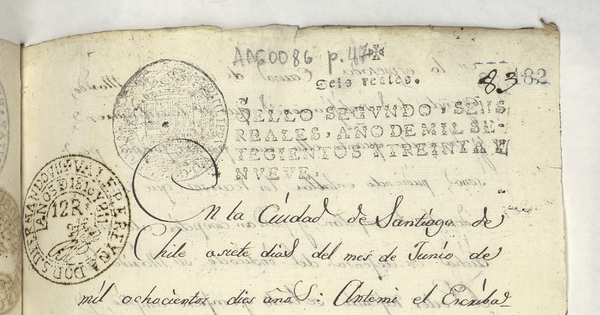 AAG0086 p. 47
Seis reales.
83 182
SELLO SEGVNDO, SEIS
REALES, AÑO DE MIL SE-
TECIENTOS Y TREINTA E
NVEVE.
12 R.
En la Ciudad de Santiago de
Chile a siete dias del mes de Junio de
mil ochocientos dies años: Antemi el Escriba-